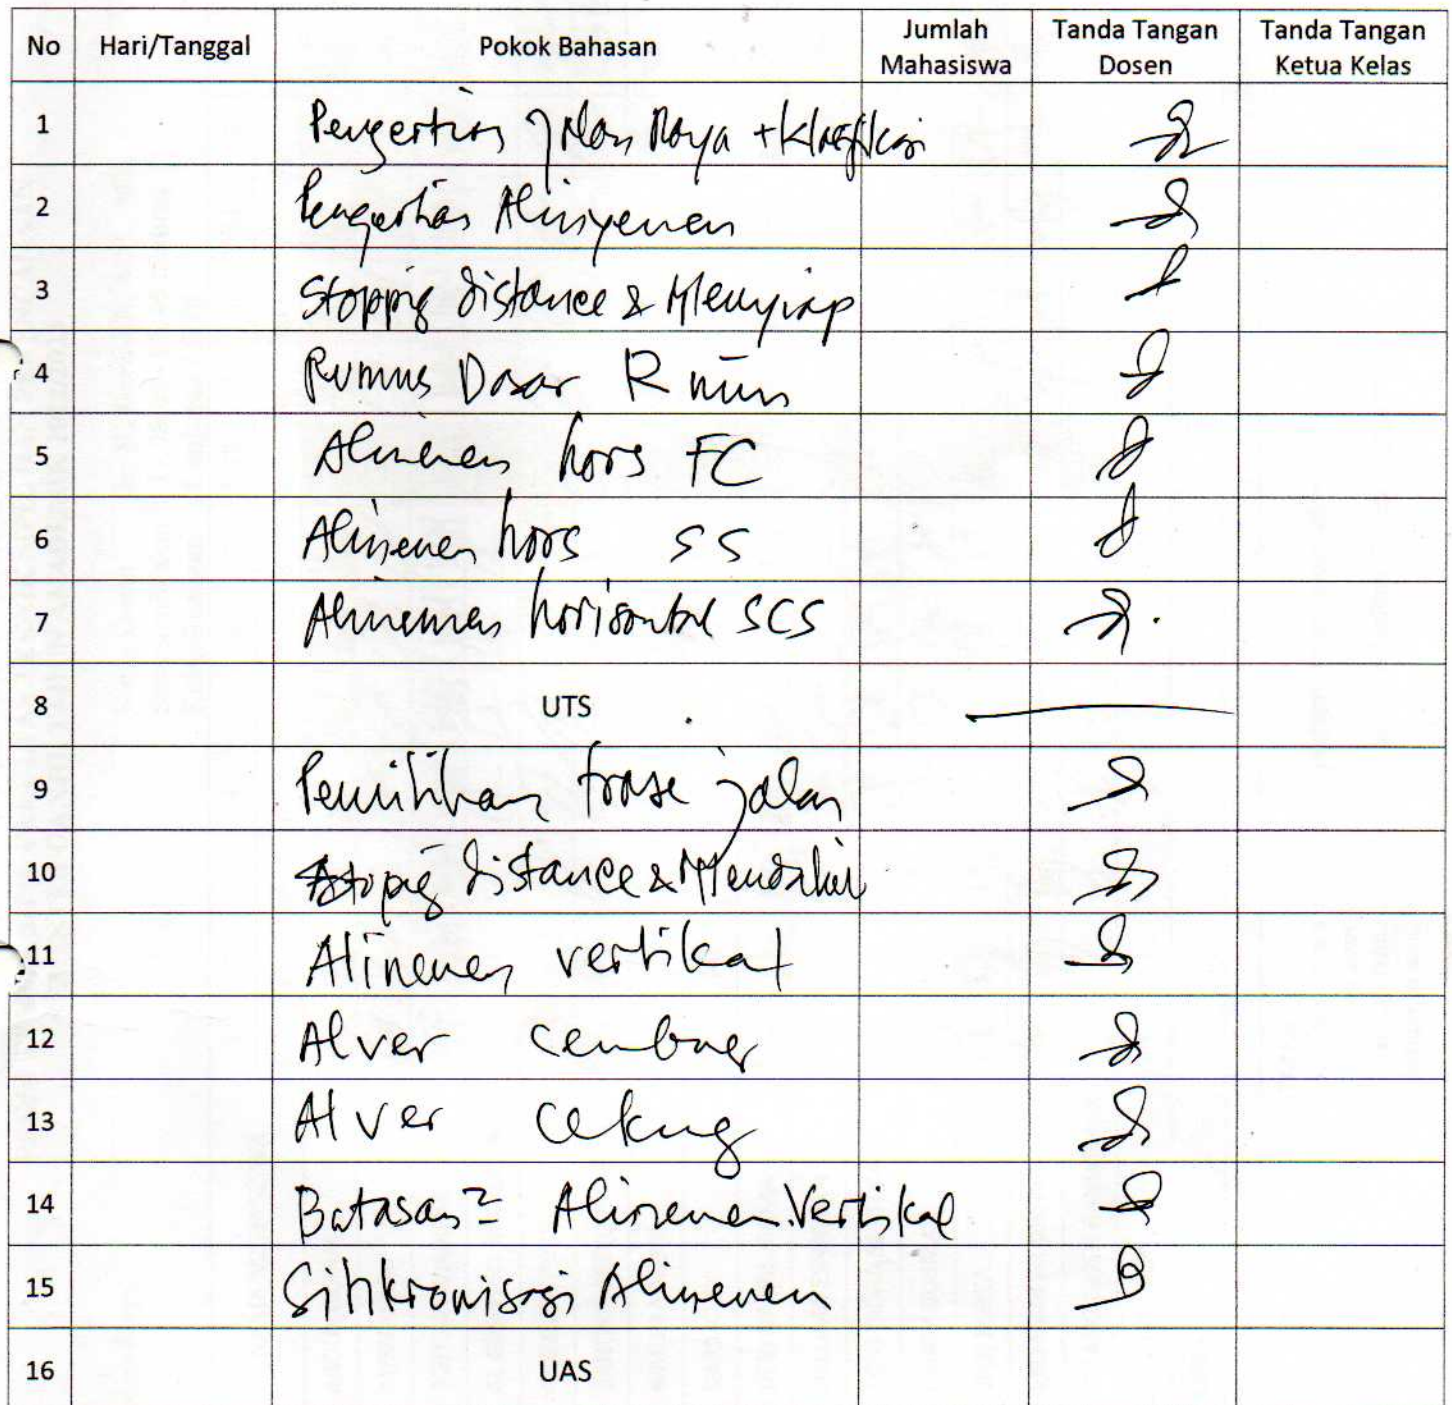 No Hari/Tanggal Pokok Bahasan Jumlah Mahasiswa Tanda Tangan Dosen Tanda Tangan Ketua Kelas
1 Pengertian Jalan Raya + Klasifikasi
2 Pengertian Alinyemen
3 Stopping distance & Menyiap
4 Rumus Dasar R min
5 Alinemen hors FC
6 Alinemen hors SS
7 Alinemen horisontal SCS
8 UTS
9 Pemilihan trase jalan
10 Stoping distance & Mendahui
11 Alinemen vertikal
12 Alver cembung
13 Alver Cekung
14 Batasan2 Alinemen Vertikal
15 Sinkronisasi Alinemen
16 UAS